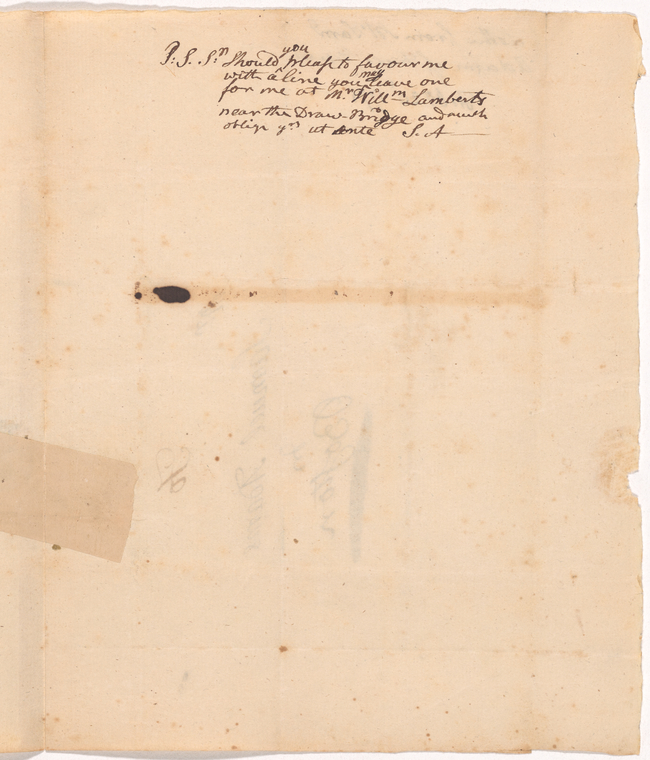 P: S. Sr. Should you pleas to favour me
with a line you may leave one
for me at Mr. Willm Lamberts
near the Draw-Bridge and much
oblige yrs ut ante S. A
Boston